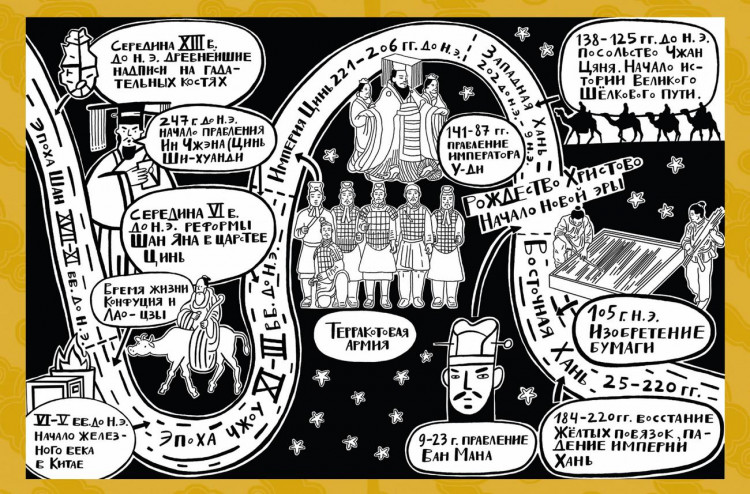 Середина XIII в.
до н. э. древнейшие
надписи на гада-
тельных костях
Эпоха Шан XVII–XI вв. до н. э.
247 г до н. э.
начало правления
Ин Чжэна (Цинь
Ши-хуанди
Середина VI в.
до н. э. реформы
Шан Яна в царстве
Цинь
Время жизни
Конфуция и
Лао-цзы
VI–V вв. до н. э.
Начало желез-
ного века
в Китае
Эпоха Чжоу XI–III вв. до н. э.
Империя Цинь 221–206 гг. до н. э.
Терракотовая
армия
Западная Хань
202 до н. э. – 9 н. э.
141–87 гг.
правление
императора
У-ди
138–125 гг. до н. э.
посольство Чжан
Цяня. Начало ис-
тории Великого
Шёлкового пути.
Рождество Христово
Начало новой эры
9–23 г. правление
Ван Мана
Восточная Хань – 25–220 гг.
105 г. н. э.
Изобретение
бумаги
184–220 гг. восстание
Жёлтых повязок, па-
дение империи
Хань